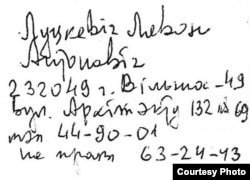 Луцкевіч Левон
Антонавіч
232049 г. Вільнюс-49
вул. Архітэкту 132 кв 69
тэл 44-90-01
на працы 63-24-43
Courtesy Photo